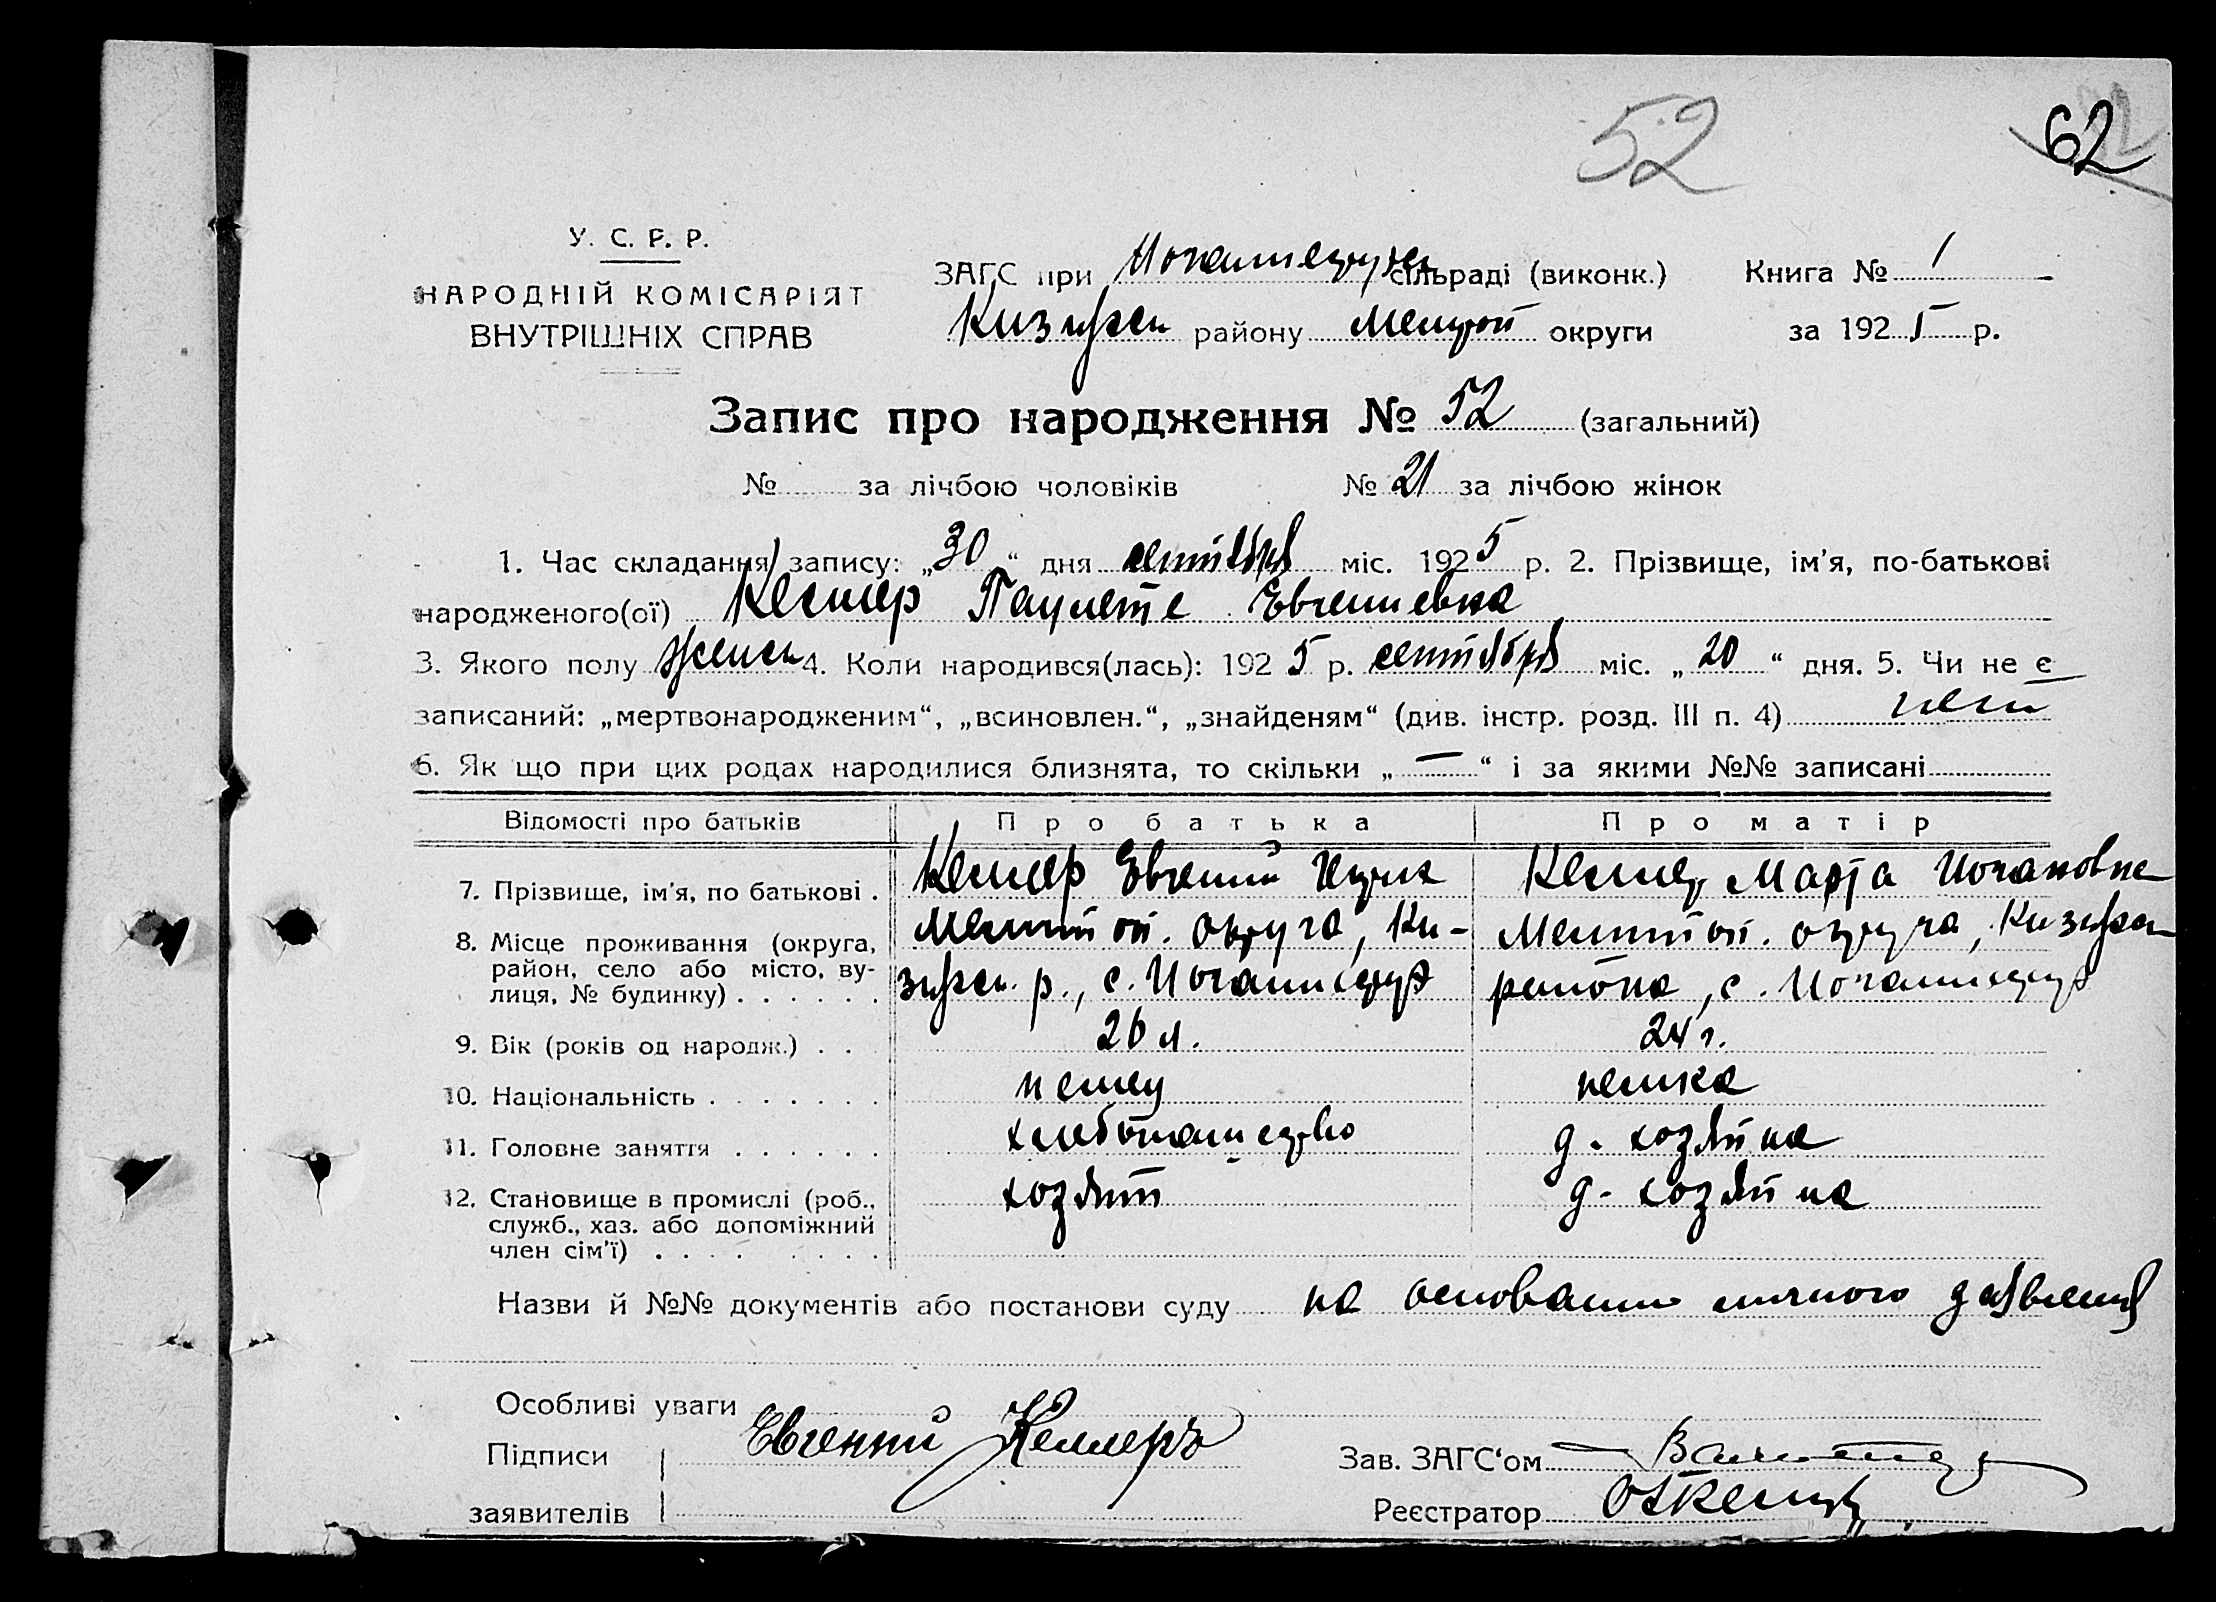 52
62
У. С. Р. Р.
НАРОДНІЙ КОМІСАРІЯТ
ВНУТРІШНІХ СПРАВ
ЗАГС при сільраді (виконк.) Книга № 1
району Мелитоп округи за 1925 р.
Запис про народження № 52 (загальний)
№ за лічбою чоловіків № 21 за лічбою жінок
1. Час складання запису: „30“ дня сентября міс. 1925 р. 2. Прізвище, ім'я, по-батькові
народженого(ої) Келлер Паулете Евгениевна
3. Якого полу женск 4. Коли народився(лась): 1925 р. сентября міс. „20“ дня. 5. Чи не є
записаний: „мертвонародженим“, „всиновлен.“, „знайденям“ (див. інстр. розд. III п. 4) нет
6. Як що при цих родах народилися близнята, то скільки „—“ і за якими №№ записані
Відомості про батьків Про батька Про матір
7. Прізвище, ім'я, по батькові . Келлер Евгений Келлер Марта Иогановна
8. Місце проживання (округа, Мелитоп. округа, Ки- Мелитоп. округа,
район, село або місто, ву- р., с. района, с.
лиця, № будинку)
9. Вік (років од народж.) . . 26 л. 24 г.
10. Національність немец немка
11. Головне заняття хлебопашество д. хозяйка
12. Становище в промислі (роб., хозяин д. хозяйка
служб., хаз. або допоміжний
член сім'ї)
Назви й №№ документів або постанови суду на основании личного заявления
Особливі уваги
Підписи Евгений Келлеръ Зав. ЗАГС'ом
заявителів Реєстратор